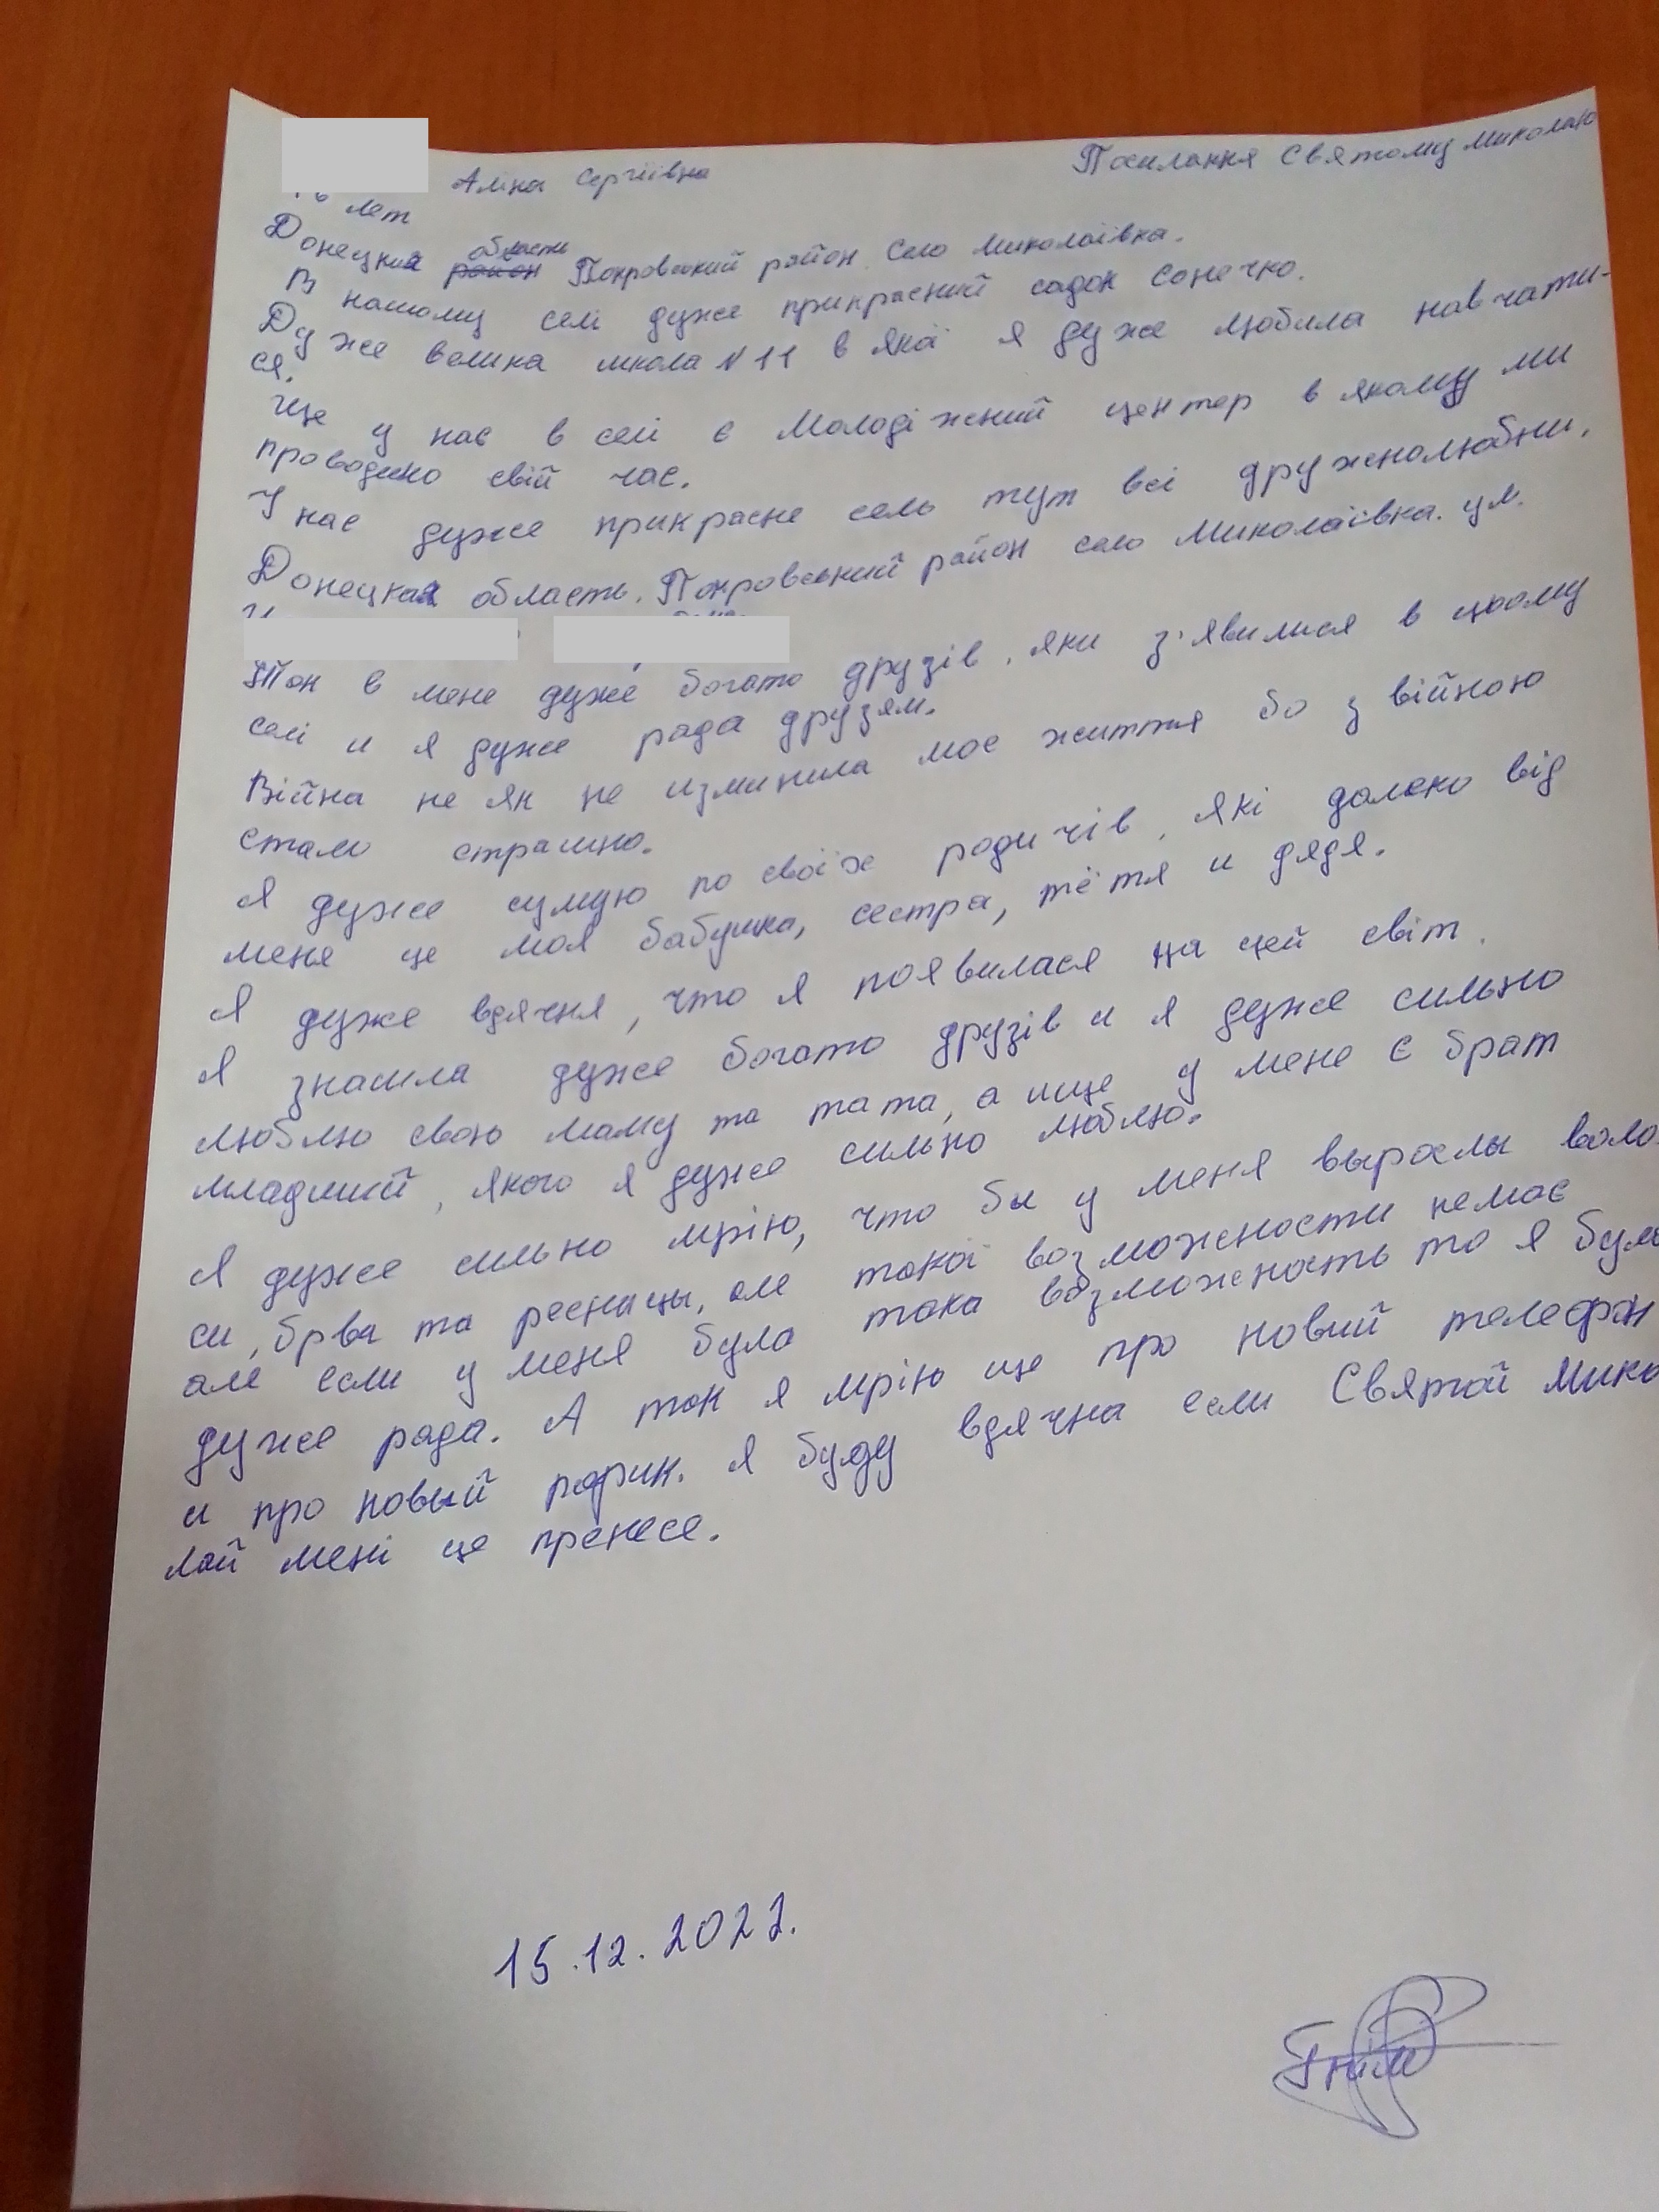 Аліна Сергіївна Посилання Святому Миколаю
лет
Донецкая область Покровський район Село Миколаївка.
В нашому селі дуже прикрасний садок Сонечко.
Дуже велика школа №11 в якої я дуже любила навчати-
ся.
Іще у нас в селі є Молодіжний центер в якому ми
проводимо свій час.
У нас дуже прикрасне село тут всі дружелюбни.
Донецкая область. Покровський район село Миколаївка. ул.
Так в мене дуже богато друзів, яки з'явилися в цьому
селі и я дуже рада друзям.
Війна не як не изминила моє життя бо з війною
стало страшно.
Я дуже сумую по своїх родичів, які далеко від
меня це моя бабушка, сестра, тётя и дядя.
Я дуже вдячня, что я появилася на цей світ.
Я знашла дуже богато друзів и я дуже сильно
люблю свою маму та тата, а ище у мене є брат
младший, якого я дуже сильно люблю.
Я дуже сильно мрію, что бы у меня выраслы воло
си, брва та ресницы, але такої возможности немає
але если у меня була така возможность то я була
дуже рада. А так я мрію ще про новий телефон
и про новый парик. Я буду вдячна если Святой Мико
лай мені це пренесе.
15.12.2022.